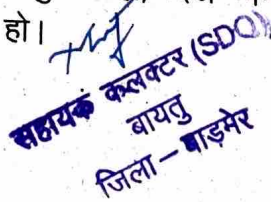 हो।
सहायक कलक्टर (SDO)
बायतु
जिला – बाड़मेर